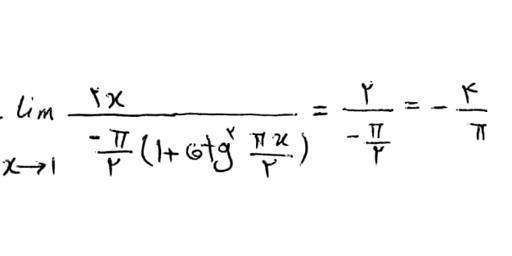 lim x→1 ۲x / (-π/۲ (1+ cotg^۲ πx/۲)) = ۲ / (-π/۲) = - ۴/π